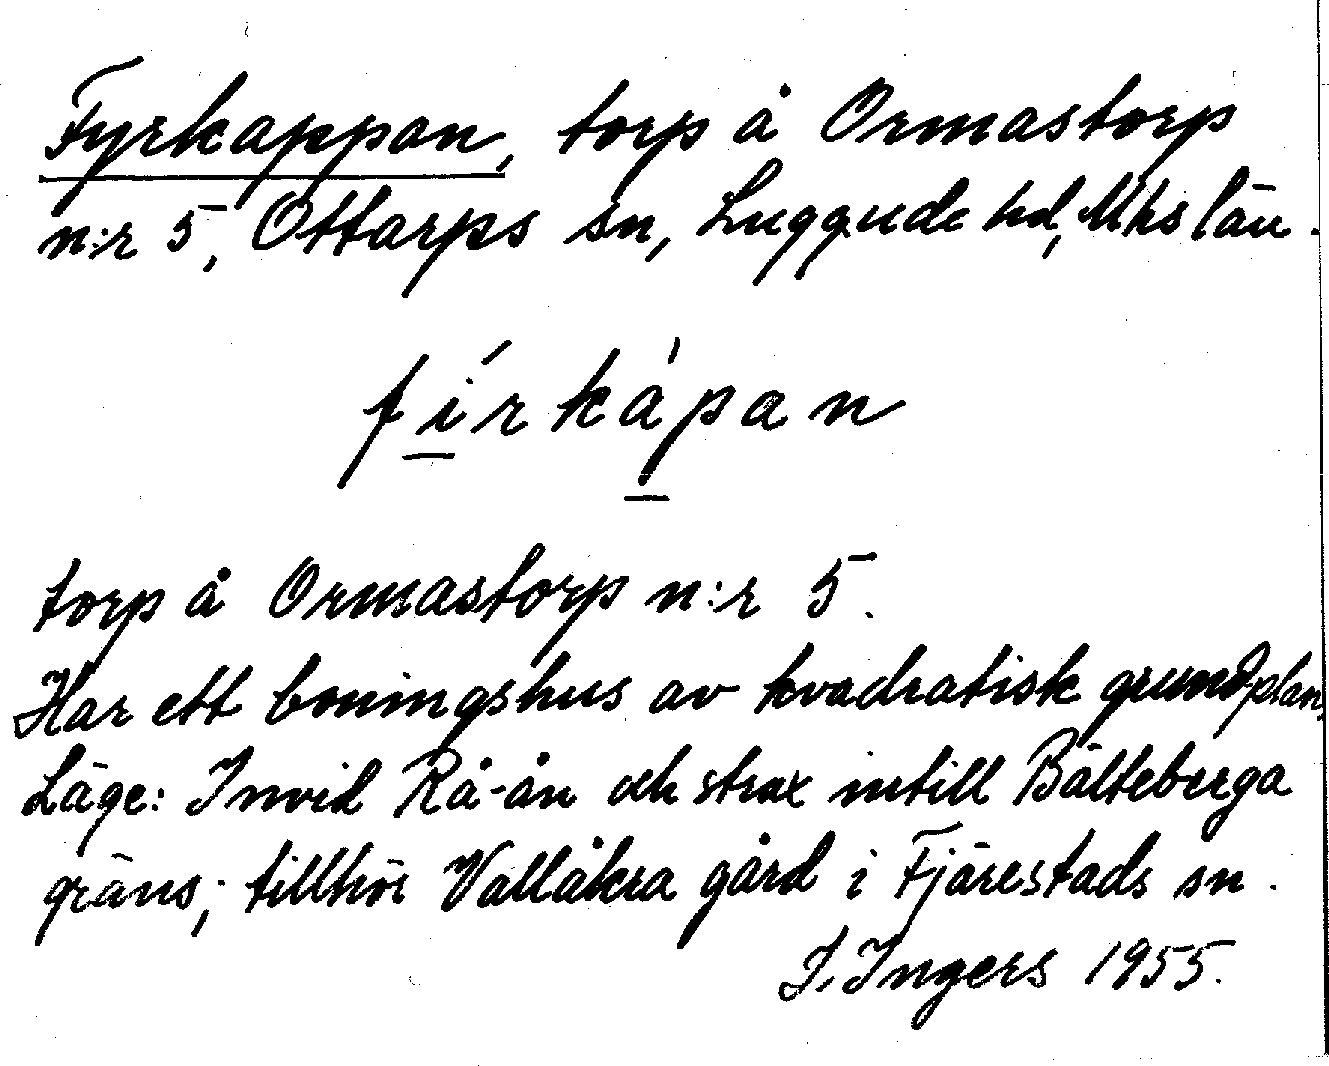 Fyrkappan, torp å Ormastorp
n:r 5, Ottarps sn, Luggude hd, Mhs län.
fírkápan
torp å Ormastorp n:r 5.
Har ett boningshus av kvadratisk grundplan.
Läge: Invid Rå-ån och strax intill Bälteberga
gräns; tillhör Vallåkra gård i Fjärestads sn.
I. Ingers 1955.